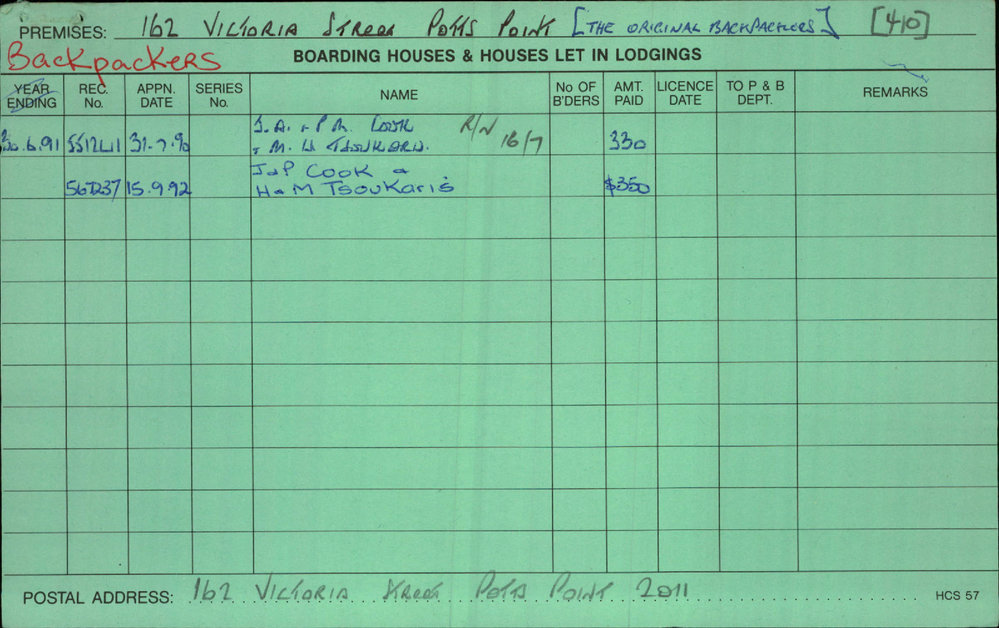 PREMISES: 162 VICTORIA STREET POTTS POINT [THE ORIGINAL BACKPACKERS] [410]
Backpackers
BOARDING HOUSES & HOUSES LET IN LODGINGS
YEAR ENDING REC. No. APPN. DATE SERIES No. NAME No OF B'DERS AMT. PAID LICENCE DATE TO P & B DEPT. REMARKS
30.6.91 31.7.90 J.A. & P.M. COOK R/N 16/7
& M. H 330
J & P COOK &
15.9.92 H & M Tsoukaris $350
POSTAL ADDRESS: 162 VICTORIA STREET POTTS POINT 2011 HCS 57